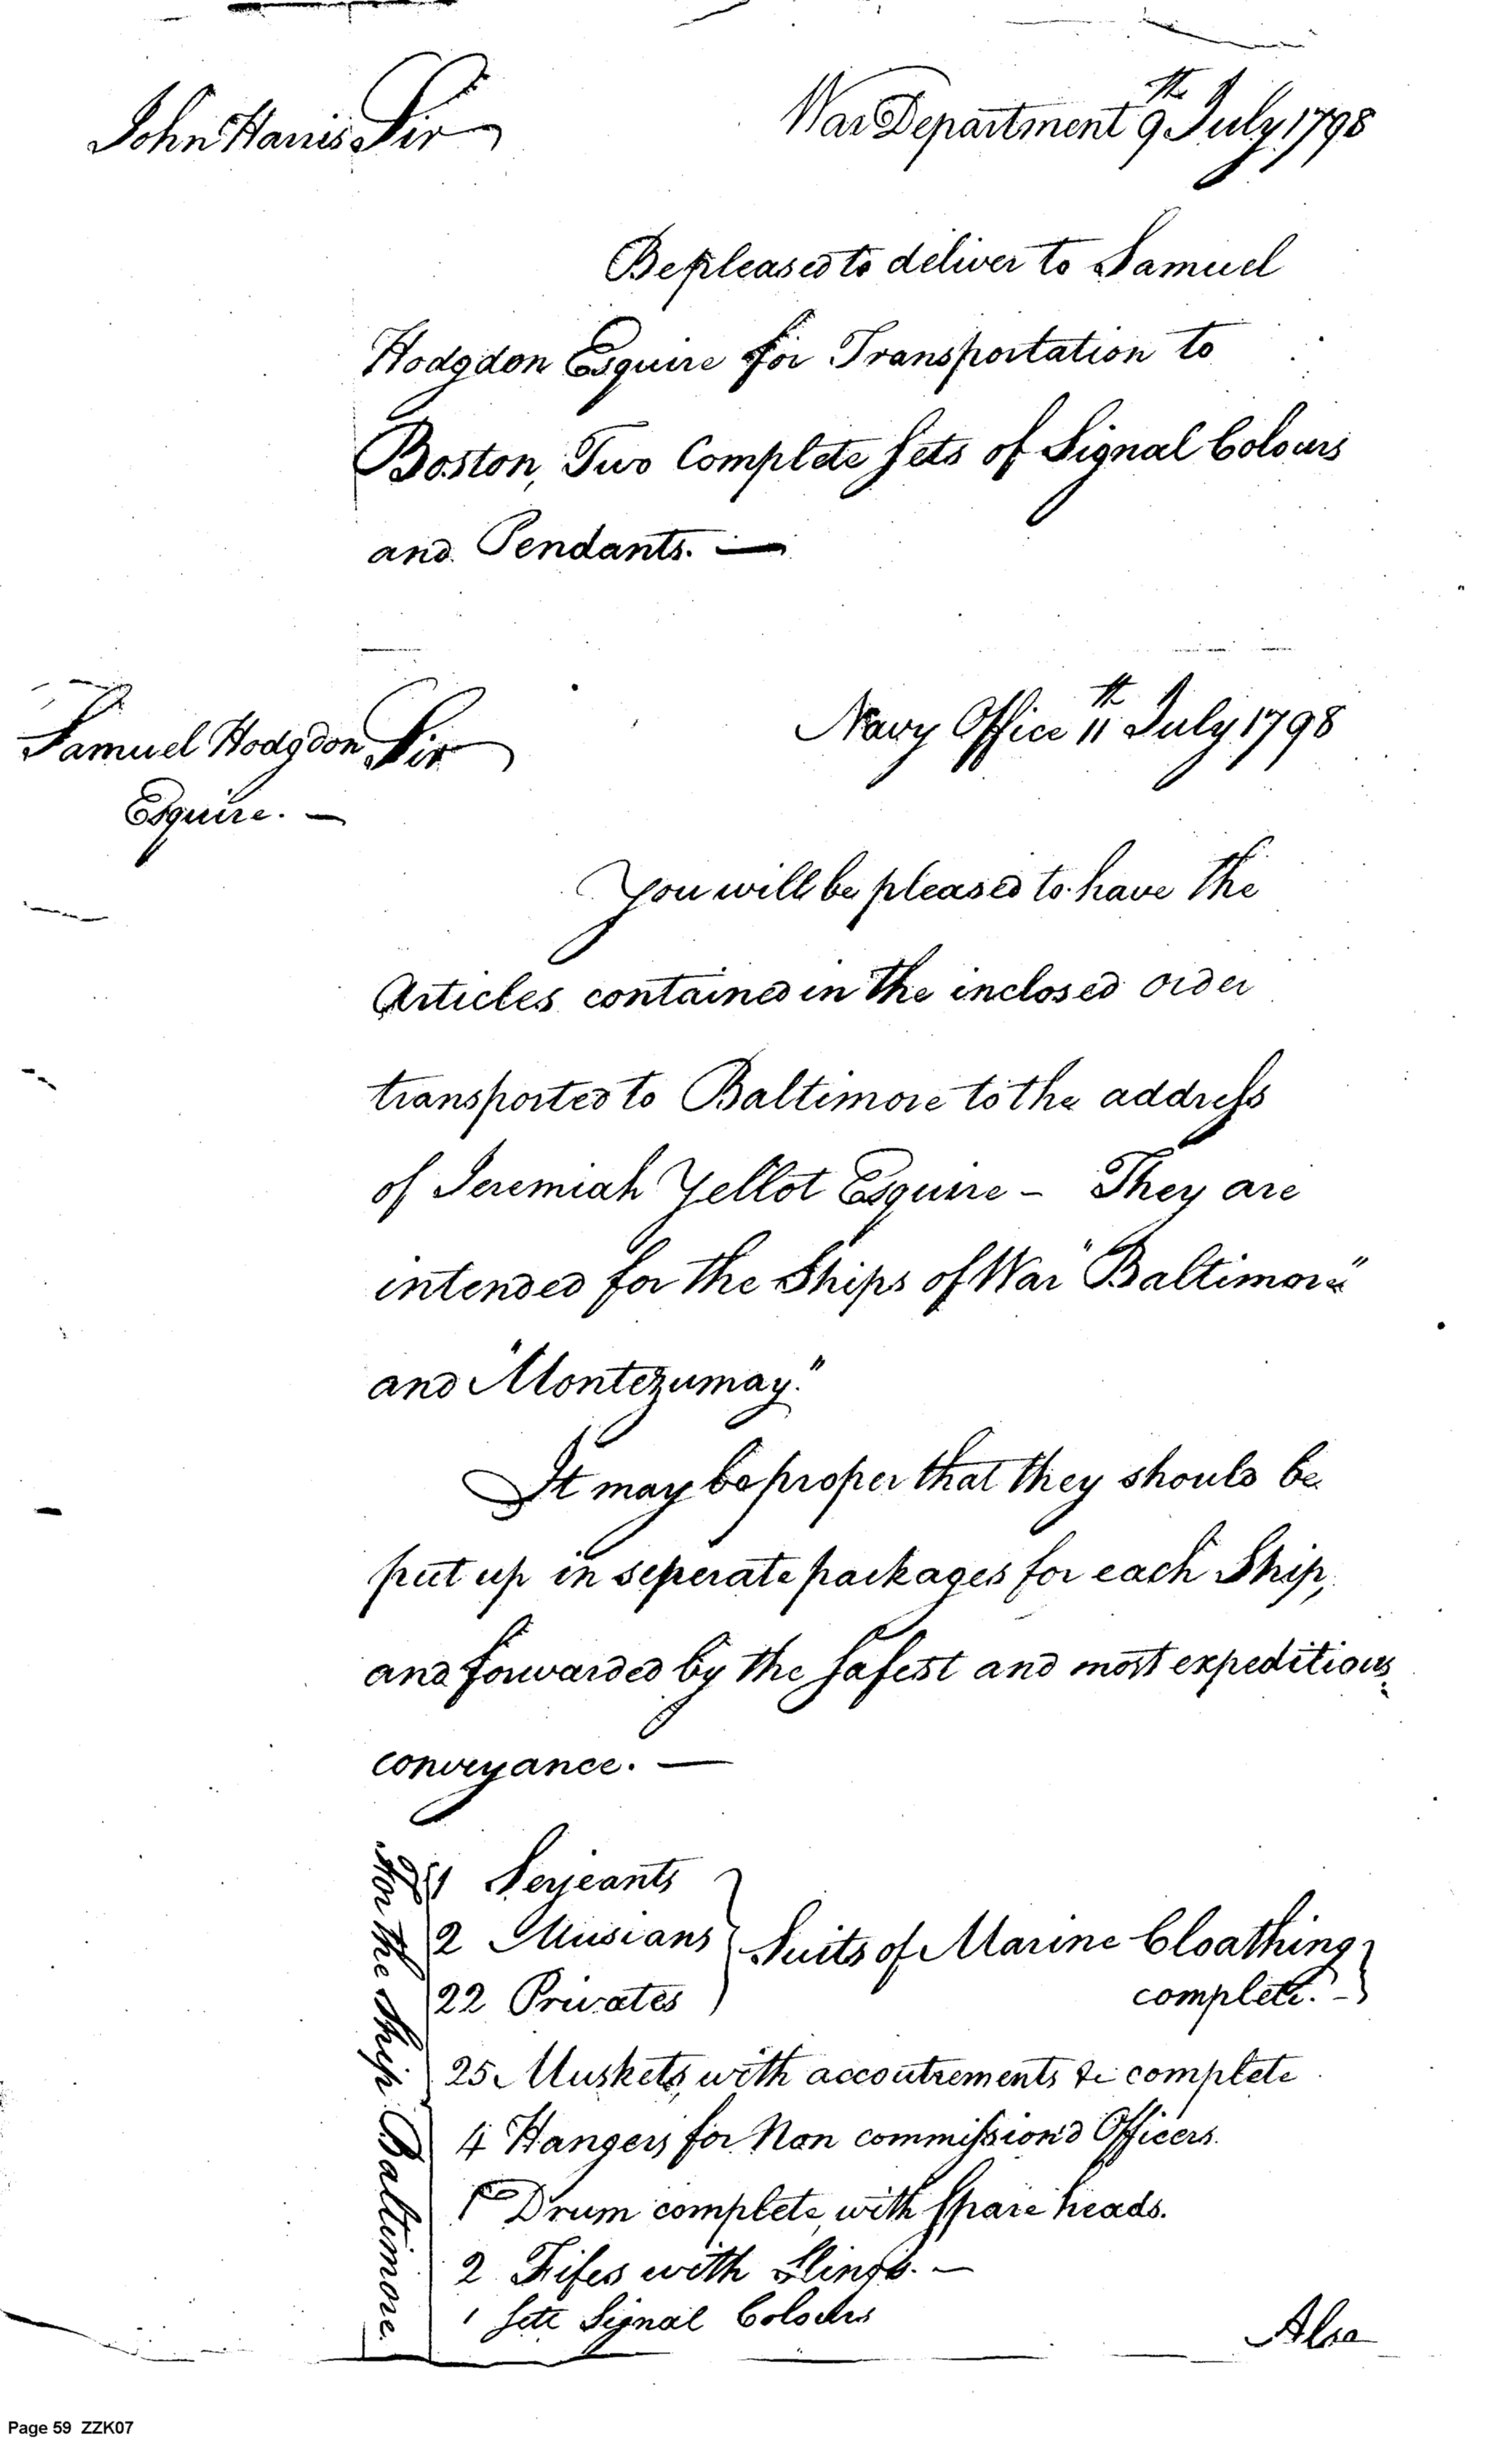 John Harris Sir War Department 9th July 1798
Be pleased to deliver to Samuel
Hodgdon Esquire for Transportation to
Boston, Two Complete Sets of Signal Colours
and Pendants. —
Samuel Hodgdon Sir Navy Office 11th July 1798
Esquire. —
You will be pleased to have the
Articles contained in the inclosed order
transported to Baltimore to the address
of Jeremiah Yellot Esquire – They are
intended for the Ships of War "Baltimore"
and "Montezumay."
It may be proper that they should be
put up in seperate packages for each Ship,
and forwarded by the safest and most expeditious
conveyance. —
For the Ship Baltimore.
1 Serjeants
2 Musians
22 Privates
Suits of Marine Cloathing
complete. –
25 Muskets with accoutrements &c complete
4 Hangers for Non commission'd Officers.
1 Drum complete with spare heads.
2 Fifes with Slings. —
1 Sett Signal Colours
Also
Page 59 ZZK07